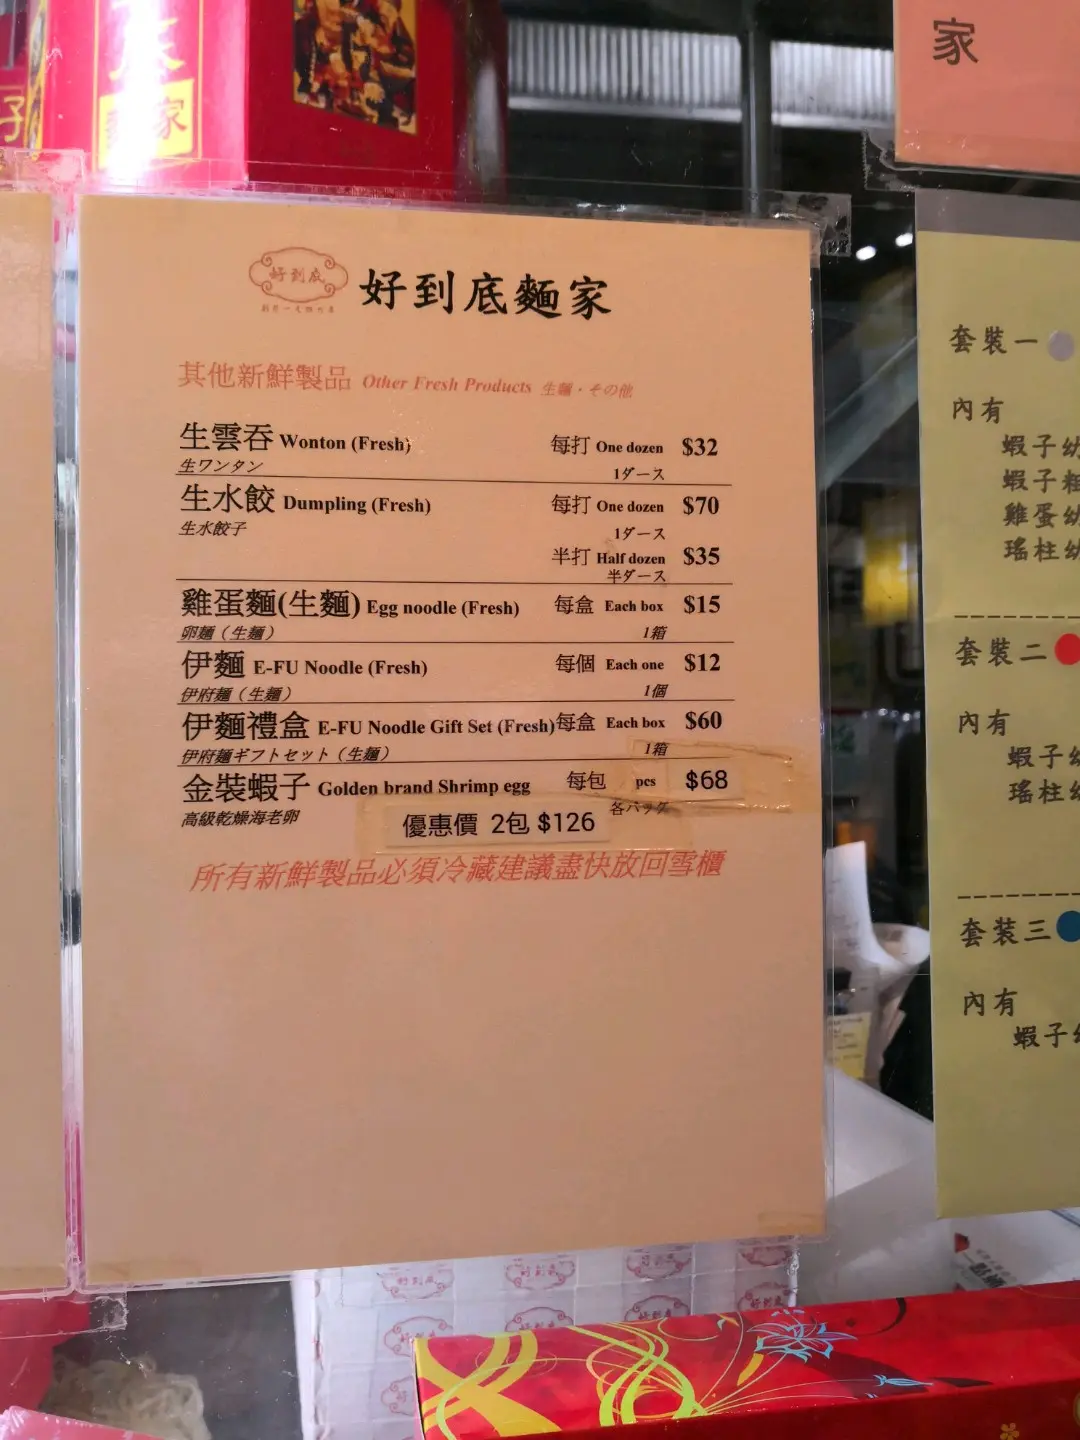 家
家
子
好到底
好到底麵家
其他新鮮製品 Other Fresh Products 生麵・その他
生雲吞 Wonton (Fresh) 每打 One dozen $32
生ワンタン 1ダース
生水餃 Dumpling (Fresh) 每打 One dozen $70
生水餃子 1ダース
半打 Half dozen $35
半ダース
雞蛋麵(生麵) Egg noodle (Fresh) 每盒 Each box $15
卵麵（生麵） 1箱
伊麵 E-FU Noodle (Fresh) 每個 Each one $12
伊府麵（生麵） 1個
伊麵禮盒 E-FU Noodle Gift Set (Fresh) 每盒 Each box $60
伊府麵ギフトセット（生麵） 1箱
金裝蝦子 Golden brand Shrimp egg 每包 pcs $68
高級乾燥海老卵 各パック
優惠價 2包 $126
所有新鮮製品必須冷藏建議盡快放回雪櫃
套裝一
內有
蝦子幼
蝦子粗
雞蛋幼
瑤柱幼
套裝二
內有
蝦子幼
瑤柱幼
套裝三
內有
蝦子
好到底
好到底
好到底
好到底
好到底
好到底